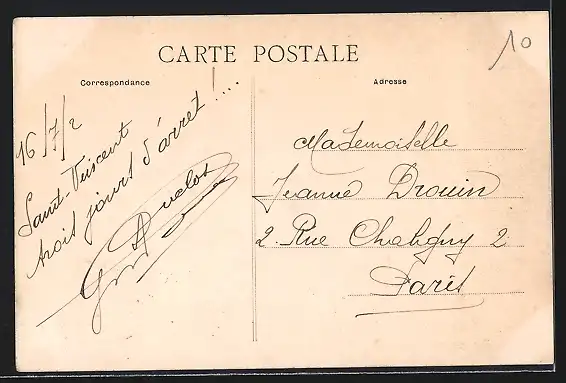 10
CARTE POSTALE
Correspondance
Adresse
16/7/2
Saint-Vincent
trois jours d'arret !....
Duclos
Mademoiselle
Jeanne Drouin
2. Rue Chaligny 2
Paris